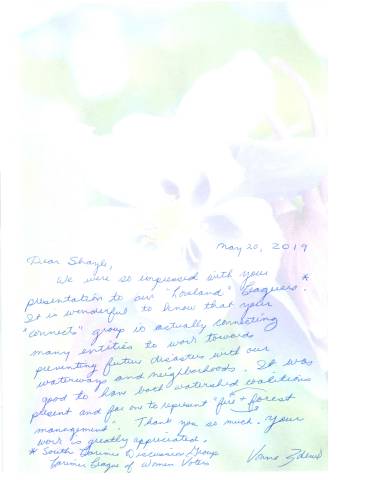 May 20, 2019
Dear Shayle,
We were so impressed with your
presentation to our "Loveland" Leaguers.*
It is wonderful to know that your
"connects" group is actually connecting
many entities to work towards
preventing future disasters with our
waterways and neighborhoods. It was
good to have both watershed coalitions
present and for one to represent "fire + forest
management". Thank you so much. Your
work is greatly appreciated.
* South Larimer Discussion Group
Larimer League of Women Voters
Vonne